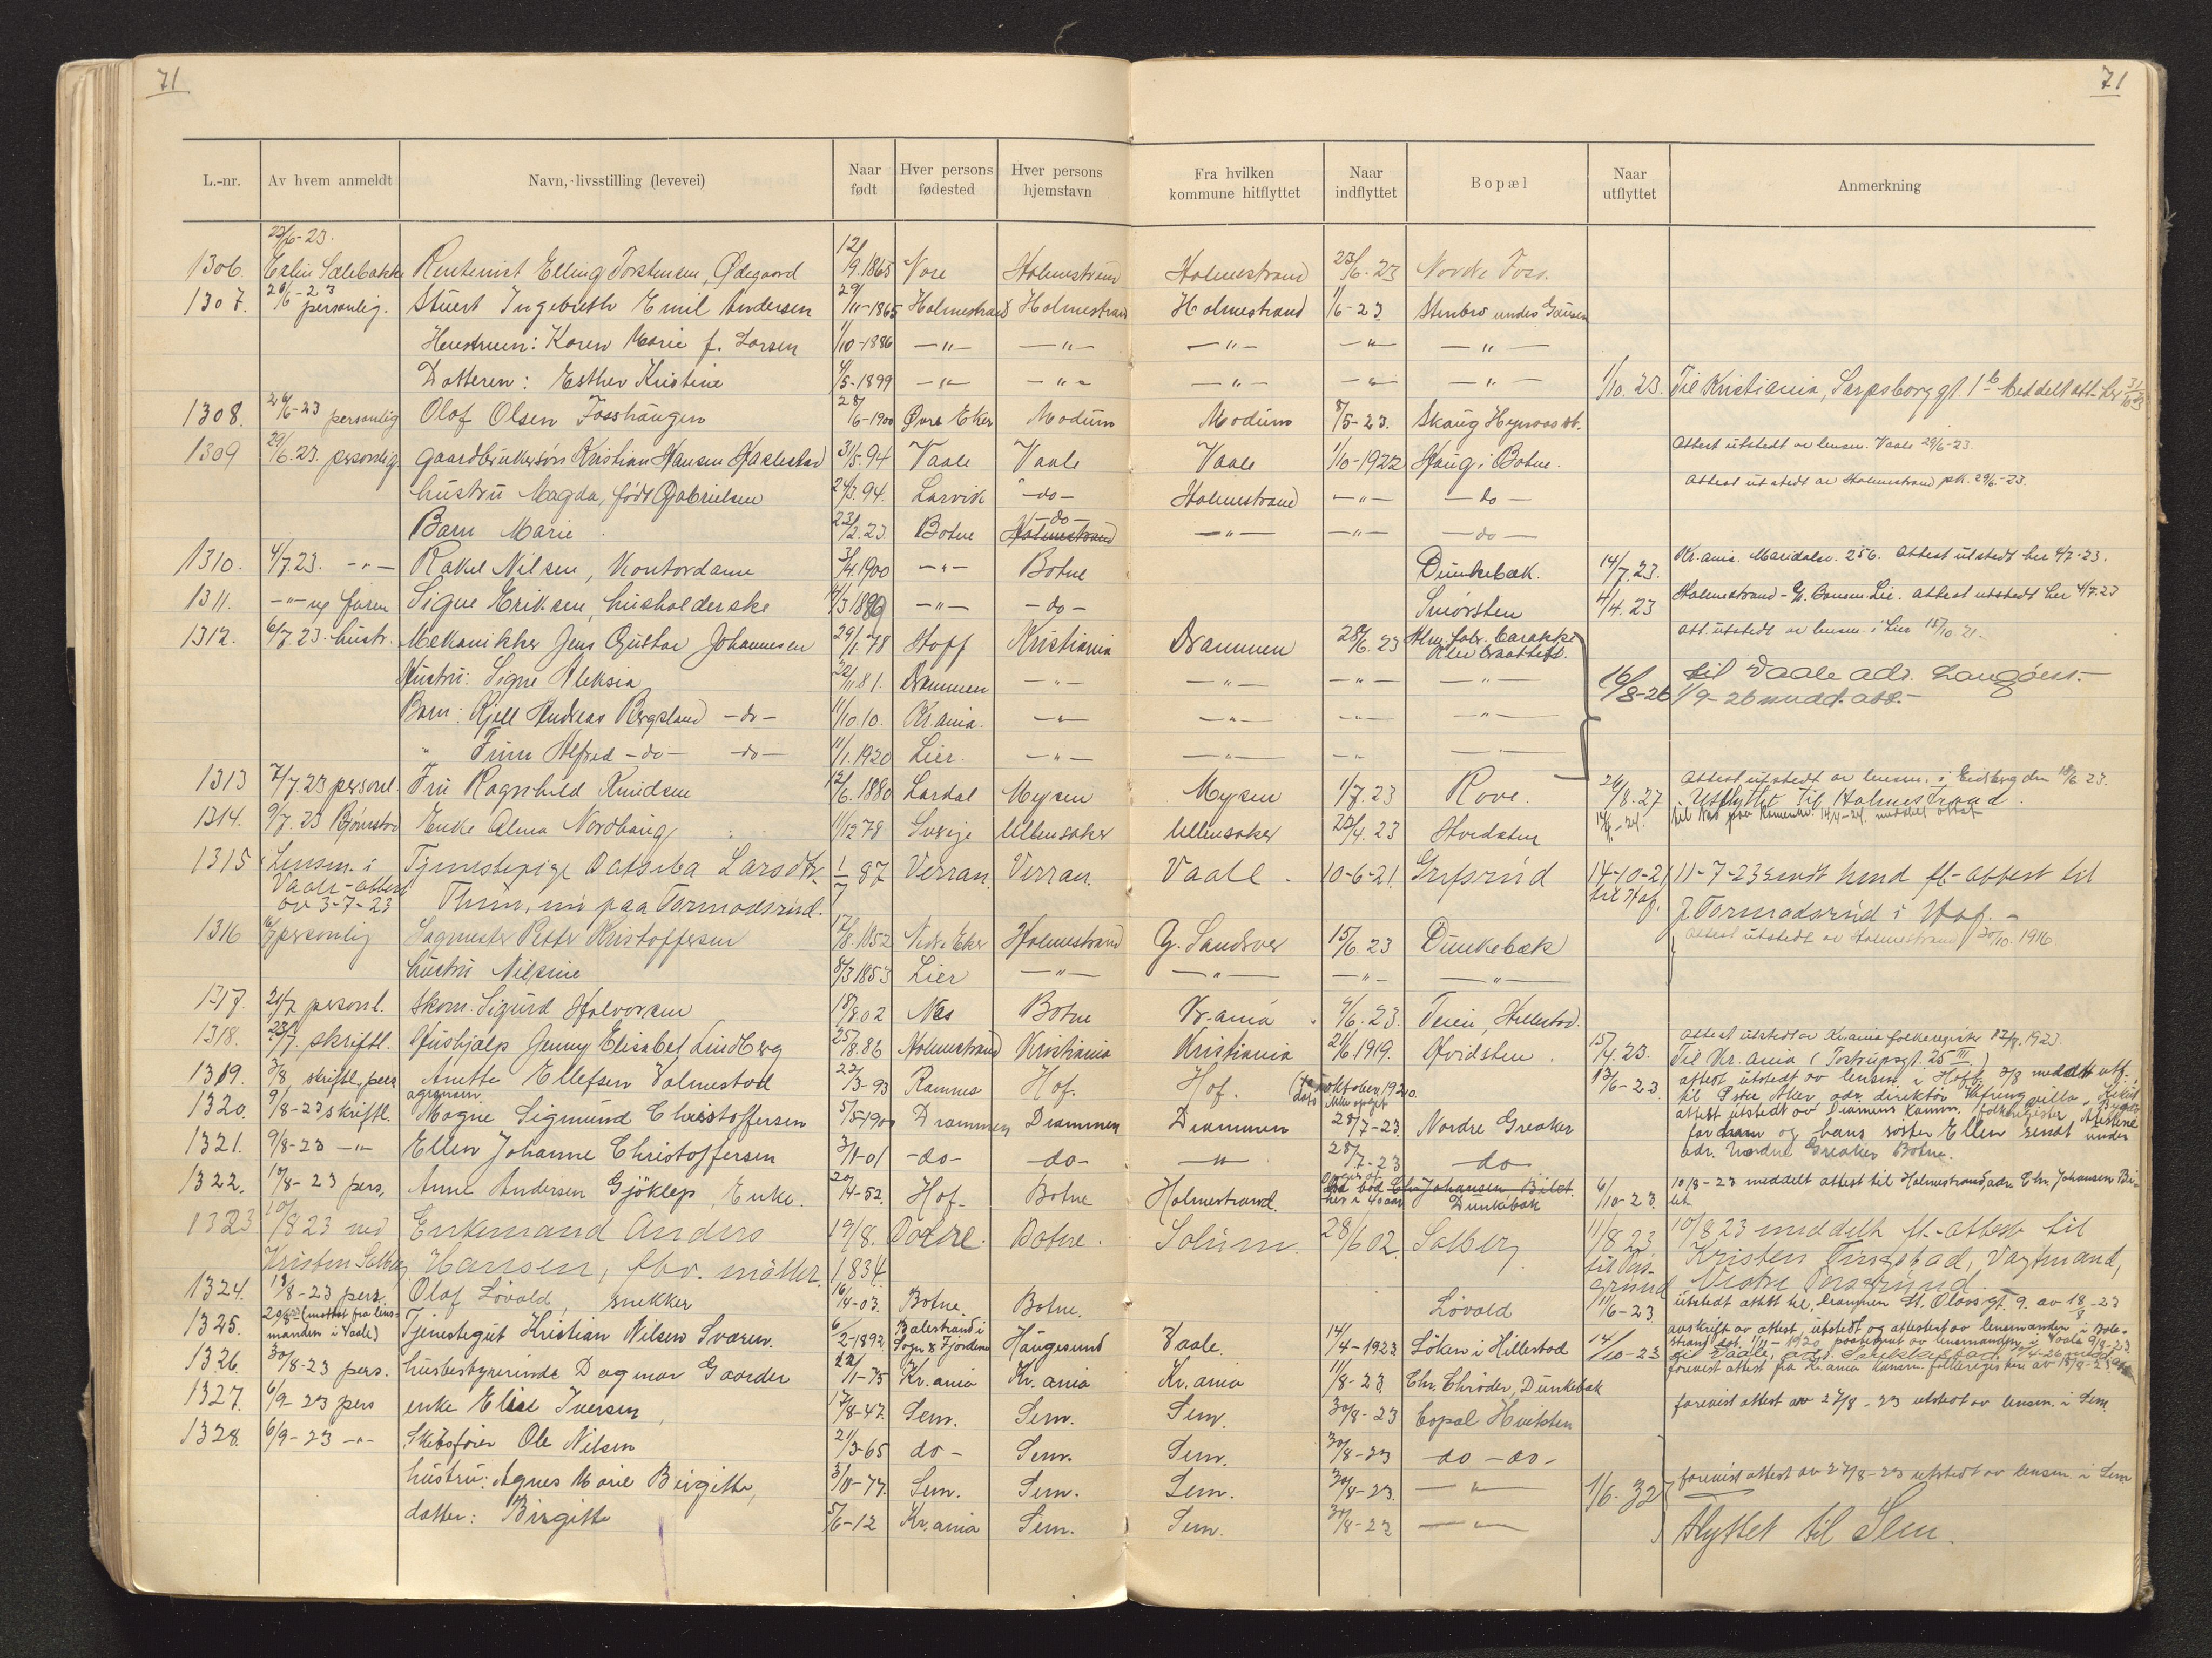 71
71
L.-nr. Av hvem anmeldt Navn, livsstilling (levevei) Naar født Hver persons fødested Hver persons hjemstavn Fra hvilken kommune hitflyttet Naar indflyttet Bopæl Naar utflyttet Anmerkning
23/6-23.
1306. Rentenist Elling Torstensen, Ødegaard 12/9.1865 Nore Holmestrand Holmestrand 23/6-23 Nordre Foss.
1307. 26/6-23 personlig. Stuert Ingebreth Emil Andersen 29/11-1865 Holmestrand Holmestrand Holmestrand 1/6-23. Stenbro under Gausen
Hustruen: Karen Marie f. Larsen 1/10-1886 -"- -"- -"- -"- -"-
Datteren: Esther Kristine 4/5-1899 -"- -"- -"- -"- -"- 1/10.23. Til Kristiania, Sarpsborggt. 1b Meddelt att. her 31/10 23
1308. 28/6-23 personlig Olaf Olsen Fosshaugen 28/6-1900 Øvre Eker Modum Modum 8/5-23. Skaug
1309 29/6.23. personlig gaardbrukersøn Kristian Hansen 31/5.94 Vaale Vaale Vaale 1/10-1922 Haug i Botne. Attest utstedt av lensm. Vaale 29/6-23.
hustru Magda, født Gabrielsen 24/3.94. Larvik -do- Holmestrand -"- -do- Attest utstedt av Holmestrand pk. 29/6-23.
Barn Marie 23/2.23. Botne Holmestrand -do- -"- -"- -do-
1310. 4/7.23. -"- Rakel Nilsen, Kontordame 3/4.1900 -"- Botne Dunkebæk. 14/7.23. Kr.ania. Maridalsv. 256. Attest utstedt her 4/7-23.
1311. -"- ved faren Signe Eriksen, husholderske 4/3 1889 -"- -do- Smørsten 4/4.23 Holmestrand - Lie. Attest utstedt her 4/7.23
1312. 6/7.23. hustr. Mekanikker Jens Gustav Johannesen 29/1.78 Hoff Kristiania Drammen 28/6.23 Att. utstedt av lensm. i Lier 15/10 21.
Hustru: Signe Aleksia 22/11.81. Drammen -"- -"- -"- -"- 16/8-26 til Vaale adr. Langøens.
Barn: Kjell Andreas Bergsland -do- 11/10.10. Kr.ania. -"- -"- -"- -"- 1/9-26 medd. att.
" Finn Alfred -do- -do- 11/1.1920 Lier. -"- -"- -"- -"-
1313 7/7.23 personl. Fru Ragnhild Knudsen 12/6.1880 Lardal Mysen Mysen 1/7.23 Rove. 26/8-27 Attest utstedt av lensm. i Eidsberg den 18/6 23. Utflyttet til Holmestrand.
1314. 9/7.23 Enke Alma Nordhaug 11/12 78 Sverige Ullensaker Ullensaker 22/4.23 Hvidsten meddelt attest
1315 Lensm. i Tjenestepige Batseba Larsdtr. 1/7 87 Verran. Verran. Vaale. 10-6-21. Grefsrud 14-10-21 11-7-23 sendt hend fl-attest til
Vaale-attest Thun, nu paa Tormodsrud. til Hof. Tormodsrud i Hof.-
av 3-7-23
1316 personlig Sagmester Peter Kristoffersen 17/8.1852 Nedre Eker Holmestrand Y. Sandsver 15/6.23 Dunkebæk Attest utstedt av Holmestrand 30/10.1916
hustru Nilsine 8/3 1853 Lier -"- -"- -"- -"-
1317. 20/7. personl. Skom. Sigurd Halvorsen 18/8.02 Nes Botne Kr.ania Teien, Hillestad.
1318. 23/7. skriftl. Hushjælp Jenny Elisabet Lindberg 25/8.86 Holmestrand Kristiania Kristiania 2/6.1919. Hvidsten. 15/4.23. Attest utstedt av Kr.ania folkeregister 12/7.1923. Til Kr.ania (Tostrupsgt. 25 III)
1319. 3/8. skriftl. pers Anette Ellefsen Valmestad 22/3-93 Ramnes Hof. Hof. oktober 1920. 13/6-23. attest utstedt av lensm. i Hoff 3/8 meddelt utfl.
til Østre Aker adr. direktør villa,
1320. 9/8-23 skriftl. agronom Magne Sigmund Christoffersen 5/5-1900 Drammen Drammen Drammen 28/7-23. Nordre Greaker attest utstedt av Drammens komm. folkeregister Attestene
1321. 9/8-23 -"- Ellen Johanne Christoffersen 3/1-01 -do- -do- -"- 28/7-23 do for ham og hans søster Ellen sendt under adr. Nordre Greaker Botne.
1322. 10/8-23 pers, Anne Andersen Gjøklep, Enke. 20/4-52. Hof. Botne Holmestrand. Chr. Johansen Bilet. her i 40 aar Dunkebæk 6/10-23. 10/8-23 meddelt attest til Holmestrand, adr. Chr. Johansen Bilet.
1323 10/8 23 ved Enkemand Anders 19/8. Botne. Botne. Solum. 28/6 02. Solberg 11/8 23 10/8 23 meddelt fl-attest til
Kristen Solberg Hansen, fbv. møller. 1834. til Porsgrund Kristen Tingstad, Vagtmand, Vestre Porsgrund.
1324. 13/8-23 pers. Olaf Løvald, snekker 16/4-03. Botne. Botne. Løvald 11/6-23. utstedt attest til, Drammen St. Olavs gt. 9. av 18/8-23
1325. (mottat fra lensmanden i Vaale) Tjenestegut Kristian Nilsen Svaren. 6/2-1892 Balestrand i Sogn & Fjordene Haugesund Vaale. 14/4-1923 Løken i Hillestad 14/10-23 avskrift av attest, utstedt og attestert av lensmanden i Balestrand
til Vaale,
1326. 30/8-23 pers. husbestyrerinde Dagmar Gaarder 22/1-75 Kr.ania Kr.ania Kr.ania 11/8-23. Chr. Chrøder, Dunkebæk forevist attest fra Kr.ania komm. folkeregister av 18/8-23
1327. 6/9-23 pers enke Elise Iversen, 17/8-47. Sem. Sem. Sem. 30/8-23 bopæl Hvitsten forevist attest av 27/8-23 utstedt av lensm. i Sem.
1328. 6/9-23 -"- Skibsfører Ole Nilsen 21/3-65 do- Sem. Sem. 30/8-23 do-do-
hustru: Agnes Marie Birgitte, 3/10-77. Sem. Sem. Sem. 30/8-23. -"- 1/6.32 forevist attest av 27/8-23 utstedt av lensm. i Sem
datter: Birgitte 5/6-12 Kr.ania Sem. Sem. 30/8-23 -"- flyttet til Sem.